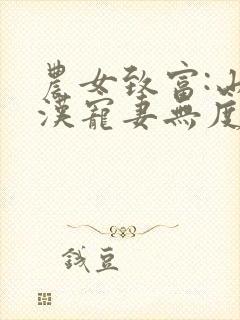 農女致富:山
漢寵妻無度
錢豆